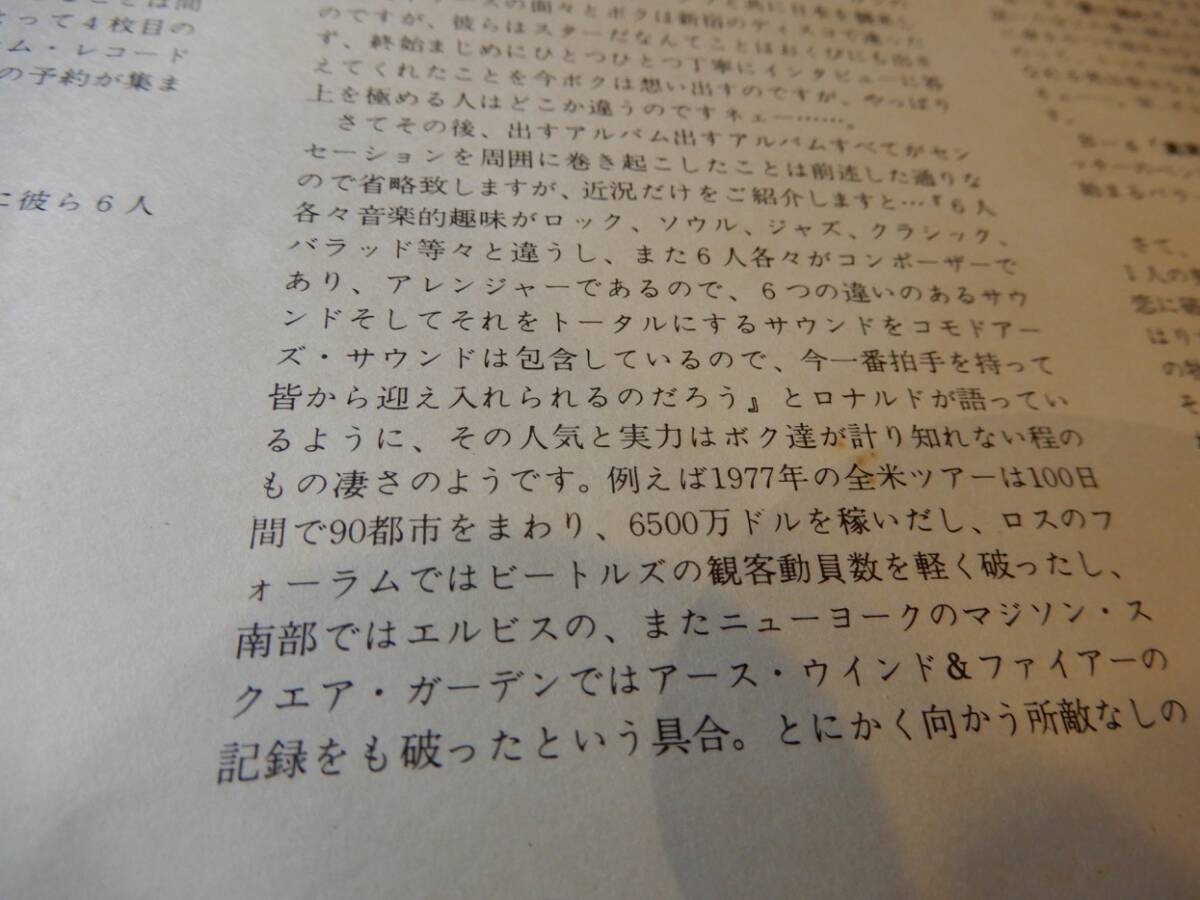 ことは間
って4枚目の
ム・レコード
の予約が集ま
に彼ら6人
の面々とボクは新宿のディスコで逢った
のですが、彼らはスターだなんてことはおくびにも出さ
ず、終始まじめにひとつひとつ丁寧にインタビューに答
えてくれたことを今ボクは想い出すのですが、やっぱり
上を極める人はどこか違うのですネェー……。
さてその後、出すアルバム出すアルバムすべてがセン
セーションを周囲に巻き起こしたことは前述した通りな
ので省略致しますが、近況だけをご紹介しますと…『6人
各々音楽的趣味がロック、ソウル、ジャズ、クラシック、
バラッド等々と違うし、また6人各々がコンポーザーで
あり、アレンジャーであるので、6つの違いのあるサウ
ンドそしてそれをトータルにするサウンドをコモドアー
ズ・サウンドは包含しているので、今一番拍手を持って
皆から迎え入れられるのだろう』とロナルドが語ってい
るように、その人気と実力はボク達が計り知れない程の
もの凄さのようです。例えば1977年の全米ツアーは100日
間で90都市をまわり、6500万ドルを稼いだし、ロスのフ
ォーラムではビートルズの観客動員数を軽く破ったし、
南部ではエルビスの、またニューヨークのマジソン・ス
クエア・ガーデンではアース・ウインド&ファイアーの
記録をも破ったという具合。とにかく向かう所敵なしの
始まるバラ
さて、
1人の
恋に
はり
の
そ